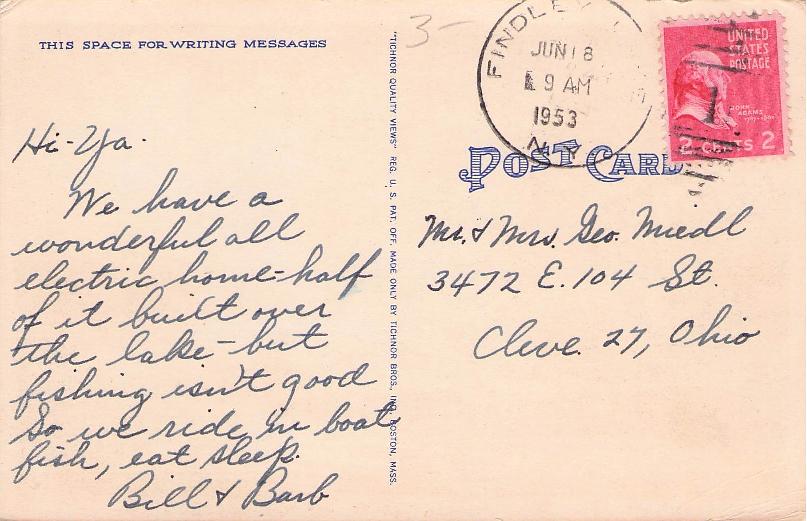 THIS SPACE FOR WRITING MESSAGES
Hi-Ya.
We have a
wonderful all
electric home-half
of it built over
the lake-but
fishing isn't good
So we ride in boat,
fish, eat sleep.
Bill & Barb
"TICHNOR QUALITY VIEWS" REG. U. S. PAT. OFF. MADE ONLY BY TICHNOR BROS., INC., BOSTON, MASS.
3-
FINDLEY
JUN 18
9 AM
1953
N.Y.
UNITED
STATES
POSTAGE
JOHN
ADAMS
2 CENTS 2
1
POST CARD
Mr. & Mrs. Geo. Miedl
3472 E. 104 St.
Cleve. 27, Ohio